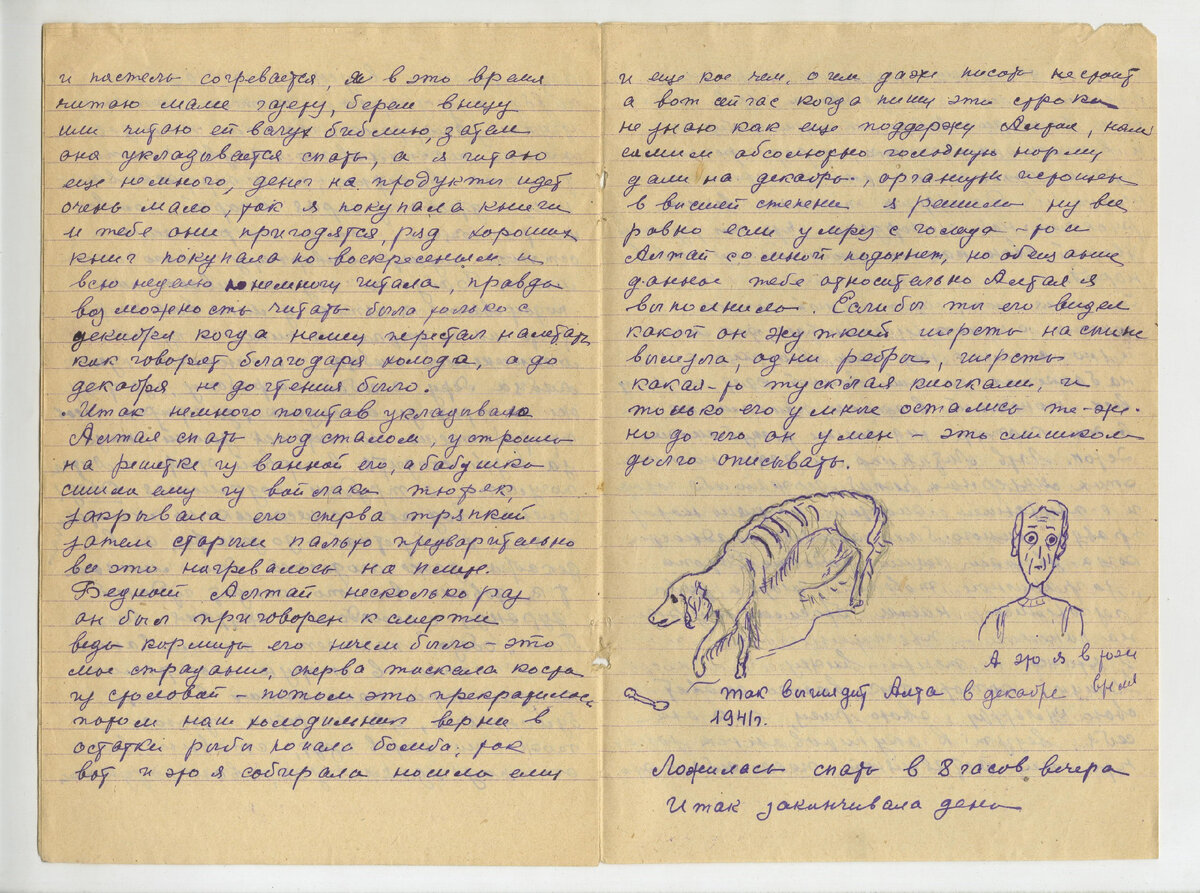 и пастель согревается, я в это время
читаю маме газету, берем в нишу
или читаю ей вслух библию, затем
она укладывается спать, а я читаю
еще немного, денег на продукты идет
очень мало, так я покупала книги
и тебе они пригодятся, ряд хороших
книг покупала по воскресеньям и
всю неделю понемногу читала, правда
возможность читать была только с
декабря когда немец перестал налетать
как говорят благодаря холода, а до
декабря не до чтения было.
Итак немного почитав укладываю
Алтая спать под сталом устроила
на решетке из ванной его, а бабушка
сшила ему из войлака тюфек,
закрывала его сперва тряпкой
затем старым пальто предварительно
все это нагревалось на плите.
Бедный Алтай несколько раз
он был приговорен к смерти
ведь кормить его нечем было - это
мое страдание, сперва таскала кости
из столовой - потом это прекратилось
потом наш холодильник верни в
остатки рыбы попала бомба, так
вот и это я собирала носила ему
и еще кое чем, о чем даже писать не стоит
а вот сейчас когда пишу эти строки
не знаю как еще поддержу Алтая, нам
самим абсолютно голодную норму
дали на декабрь, организм истощен
в высшей степени я решила ну все
равно если умру с голода - то и
Алтай со мной подохнет, но обещание
данное тебе относительно Алтая я
выполнила. Если бы ты его видел
какой он жуткий шерсть на спине
вылезла, одни ребры, шерсть
какая-то тусклая клочками, и
только его умные остались те-же.
но до чего он умен - это слишком
долго описывать.
А это я в тоже
время
так выглядит Алта в декабре
1941г.
Ложилась спать в 8 часов вечера
Итак заканчивала день